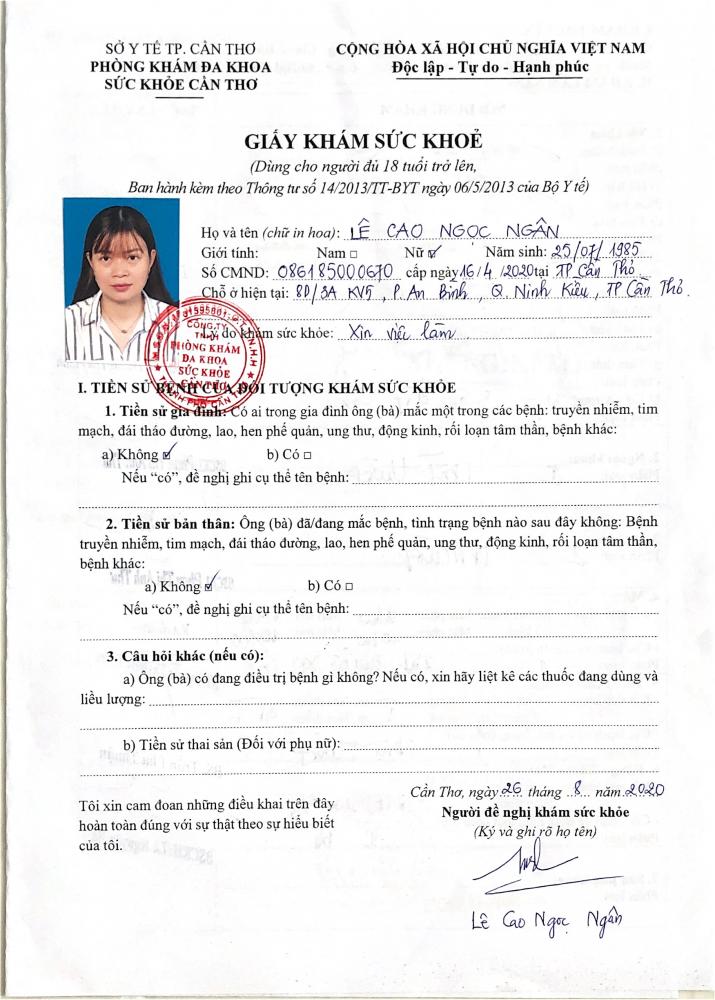 SỞ Y TẾ TP. CẦN THƠ
PHÒNG KHÁM ĐA KHOA
SỨC KHỎE CẦN THƠ
CỘNG HÒA XÃ HỘI CHỦ NGHĨA VIỆT NAM
Độc lập - Tự do - Hạnh phúc
GIẤY KHÁM SỨC KHOẺ
(Dùng cho người đủ 18 tuổi trở lên,
Ban hành kèm theo Thông tư số 14/2013/TT-BYT ngày 06/5/2013 của Bộ Y tế)
Họ và tên (chữ in hoa): LÊ CAO NGỌC NGÂN
Giới tính: Nam □ Nữ ☑ Năm sinh: 25/07/1985
Số CMND: 086185000670 cấp ngày 16/4/2020 tại TP Cần Thơ
Chỗ ở hiện tại: 8D/3A KV5, P. An Bình, Q. Ninh Kiều, TP Cần Thơ.
Lý do khám sức khỏe: Xin việc làm
CÔNG TY
TNHH
PHÒNG KHÁM
ĐA KHOA
SỨC KHỎE
CẦN THƠ
I. TIỀN SỬ BỆNH CỦA ĐỐI TƯỢNG KHÁM SỨC KHỎE
1. Tiền sử gia đình: Có ai trong gia đình ông (bà) mắc một trong các bệnh: truyền nhiễm, tim
mạch, đái tháo đường, lao, hen phế quản, ung thư, động kinh, rối loạn tâm thần, bệnh khác:
a) Không ☑ b) Có □
Nếu “có”, đề nghị ghi cụ thể tên bệnh:
2. Tiền sử bản thân: Ông (bà) đã/đang mắc bệnh, tình trạng bệnh nào sau đây không: Bệnh
truyền nhiễm, tim mạch, đái tháo đường, lao, hen phế quản, ung thư, động kinh, rối loạn tâm thần,
bệnh khác:
a) Không ☑ b) Có □
Nếu “có”, đề nghị ghi cụ thể tên bệnh:
3. Câu hỏi khác (nếu có):
a) Ông (bà) có đang điều trị bệnh gì không? Nếu có, xin hãy liệt kê các thuốc đang dùng và
liều lượng:
b) Tiền sử thai sản (Đối với phụ nữ):
Cần Thơ, ngày 26 tháng 8 năm 2020
Tôi xin cam đoan những điều khai trên đây
hoàn toàn đúng với sự thật theo sự hiểu biết
của tôi.
Người đề nghị khám sức khỏe
(Ký và ghi rõ họ tên)
Lê Cao Ngọc Ngân